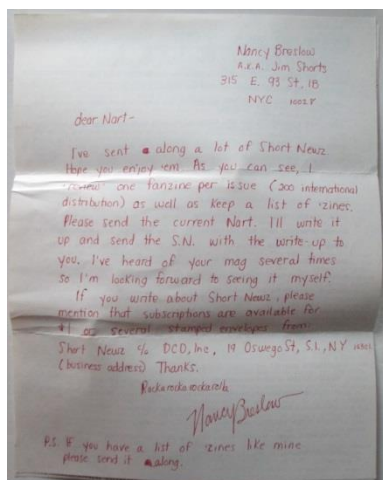 Nancy Breslow
A.K.A. Jim Shorts
315 E. 93 St, 1B
NYC 10028
dear Nart-
I've sent along a lot of Short Newz
Hope you enjoy 'em. As you can see, I
"review" one fanzine per issue (300 international
distribution) as well as keep a list of 'zines.
Please send the current Nart. I'll write it
up and send the S.N. with the write-up to
you. I've heard of your mag several times
so I'm looking forward to seeing it myself.
If you write about Short Newz, please
mention that subscriptions are available for
$1 or several stamped envelopes from:
Short Newz c/o DCD, Inc, 19 Oswego St, S.I., NY
(business address) Thanks.
Rockarockarockarolla
Nancy Breslow
P.S. If you have a list of 'zines like mine
please send it along.